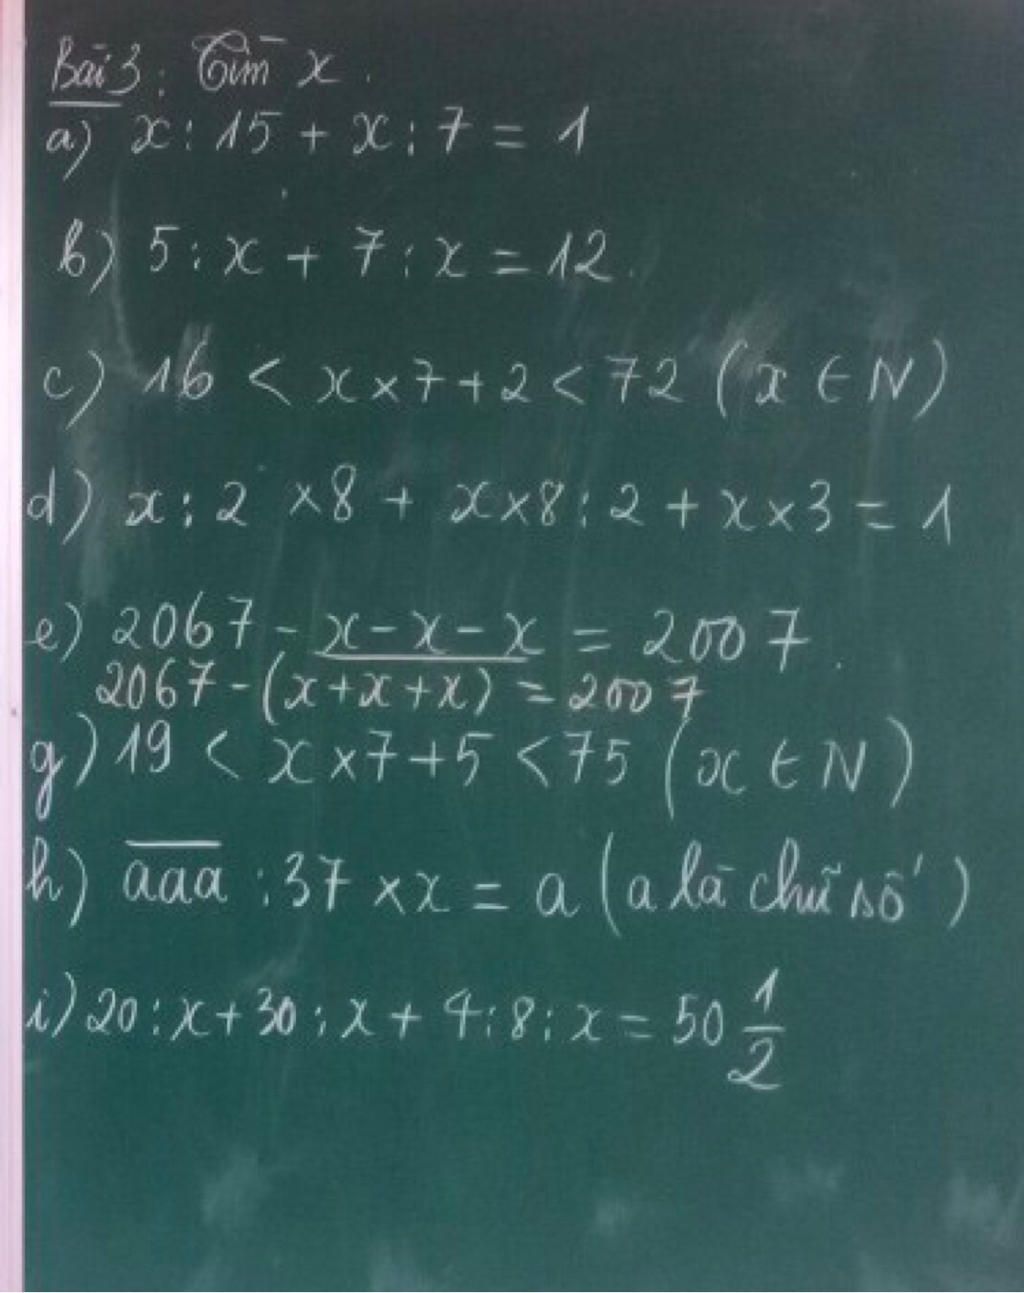 Bài 3: Tìm x.
a) x : 15 + x : 7 = 1
b) 5 : x + 7 : x = 12.
c) 16 < x × 7 + 2 < 72 (x ∈ N)
d) x : 2 × 8 + x × 8 : 2 + x × 3 = 1
e) 2067 - x - x - x = 2007.
2067 - (x + x + x) = 2007
g) 19 < x × 7 + 5 < 75 (x ∈ N)
h) a̅a̅a̅ : 37 × x = a (a là chữ số)
i) 20 : x + 30 : x + 4 : 8 : x = 50 1/2